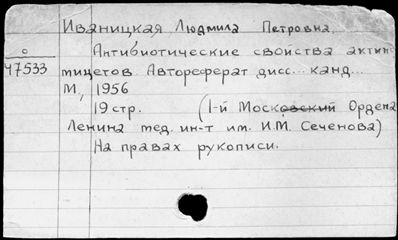 Иваницкая Людмила Петровна.
О Антибиотические свойства актин
47533 мицетов. Автореферат дисс... канд...
М, 1956
19 стр. (1-й Московский Ордена
Ленина мед. ин-т им. И.М. Сеченова)
На правах рукописи.